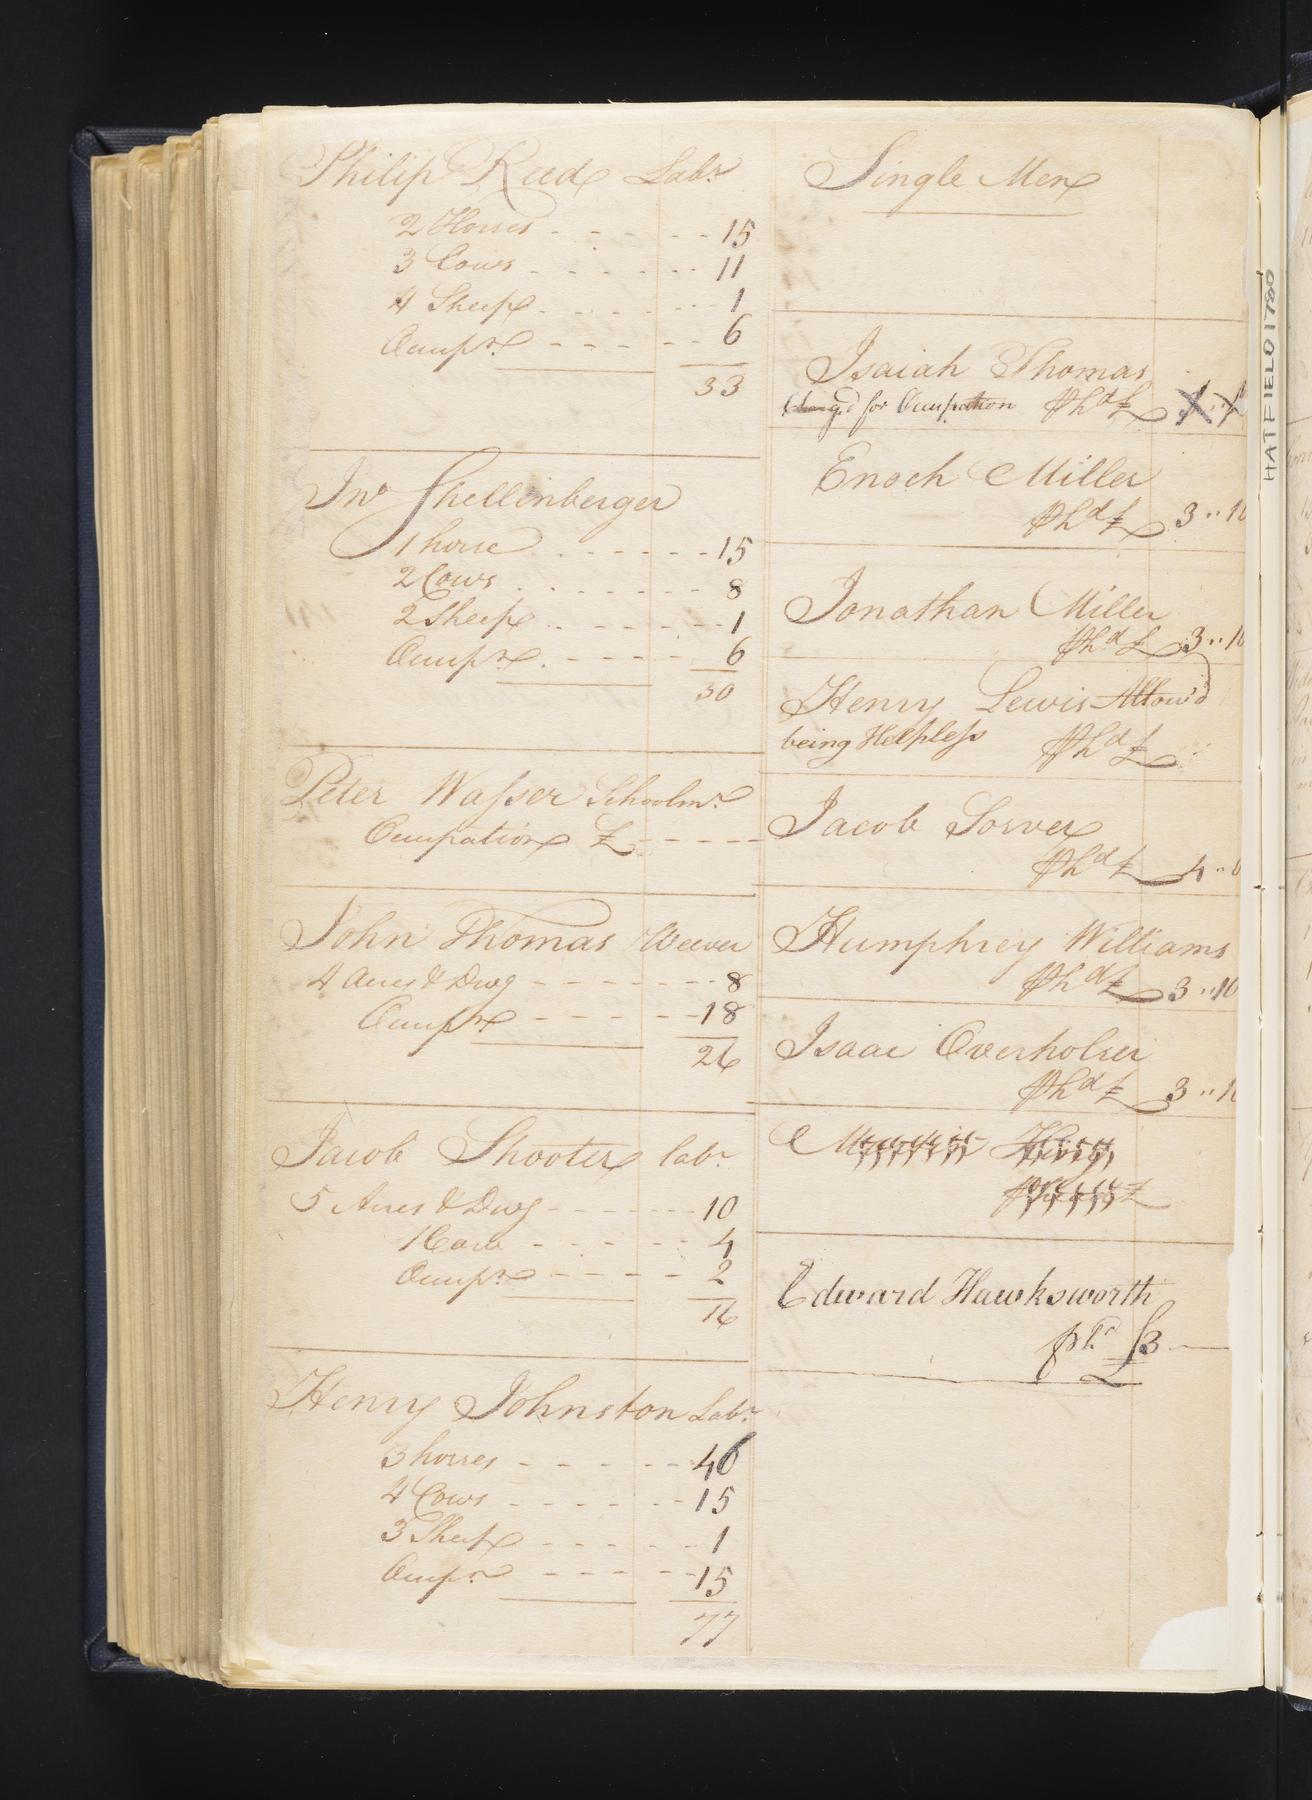 Philip Reed Labr
2 Horses - - - - 15
3 Cows - - - - 11
4 Sheep - - - - 1
Occupn - - - - 6
33
Jno Shellenberger
1 horse - - - - 15
2 Cows - - - - 8
2 Sheep - - - - 1
Occupn - - - - 6
30
Peter Wasser Schoolmr
Occupation £ - - - -
John Thomas Weever
4 Acres & Dwg - - - - 8
Occupn - - - - 18
26
Jacob Shooter labr
5 Acres & Dwg - - - - 10
1 Cow - - - - 4
Occupn - - - - 2
16
Henry Johnston Labr
3 horses - - - - 46
4 Cows - - - - 15
3 Sheep - - - - 1
Occupn - - - - 15
77
Single Men
Isaiah Thomas
Charg'd for Occupation Phd £
Enoch Miller
Phd £ 3 ,, 10
Jonathan Miller
Phd £ 3 ,, 10
Henry Lewis Allow'd
being Helpless Phd £
Jacob Sorver
Phd £ 4 ,, 0
Humphrey Williams
Phd £ 3 ,, 10
Isaac Overholser
Phd £ 3 ,, 10
Edward Hawksworth
pr £3
HATFIELD 1780